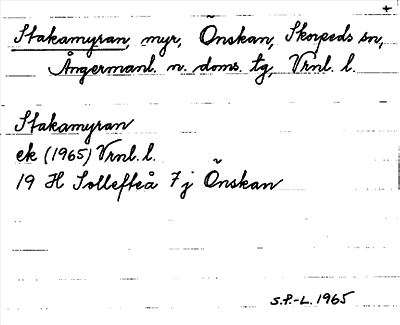 +
Stakamyran, myr, Önskan, Skorpeds sn,
Ångermanl. n. doms. tg, Vrnl. l.
Stakamyran
ek (1965) Vrnl. l.
19 H Sollefteå 7j Önskan
S.P.-L. 1965